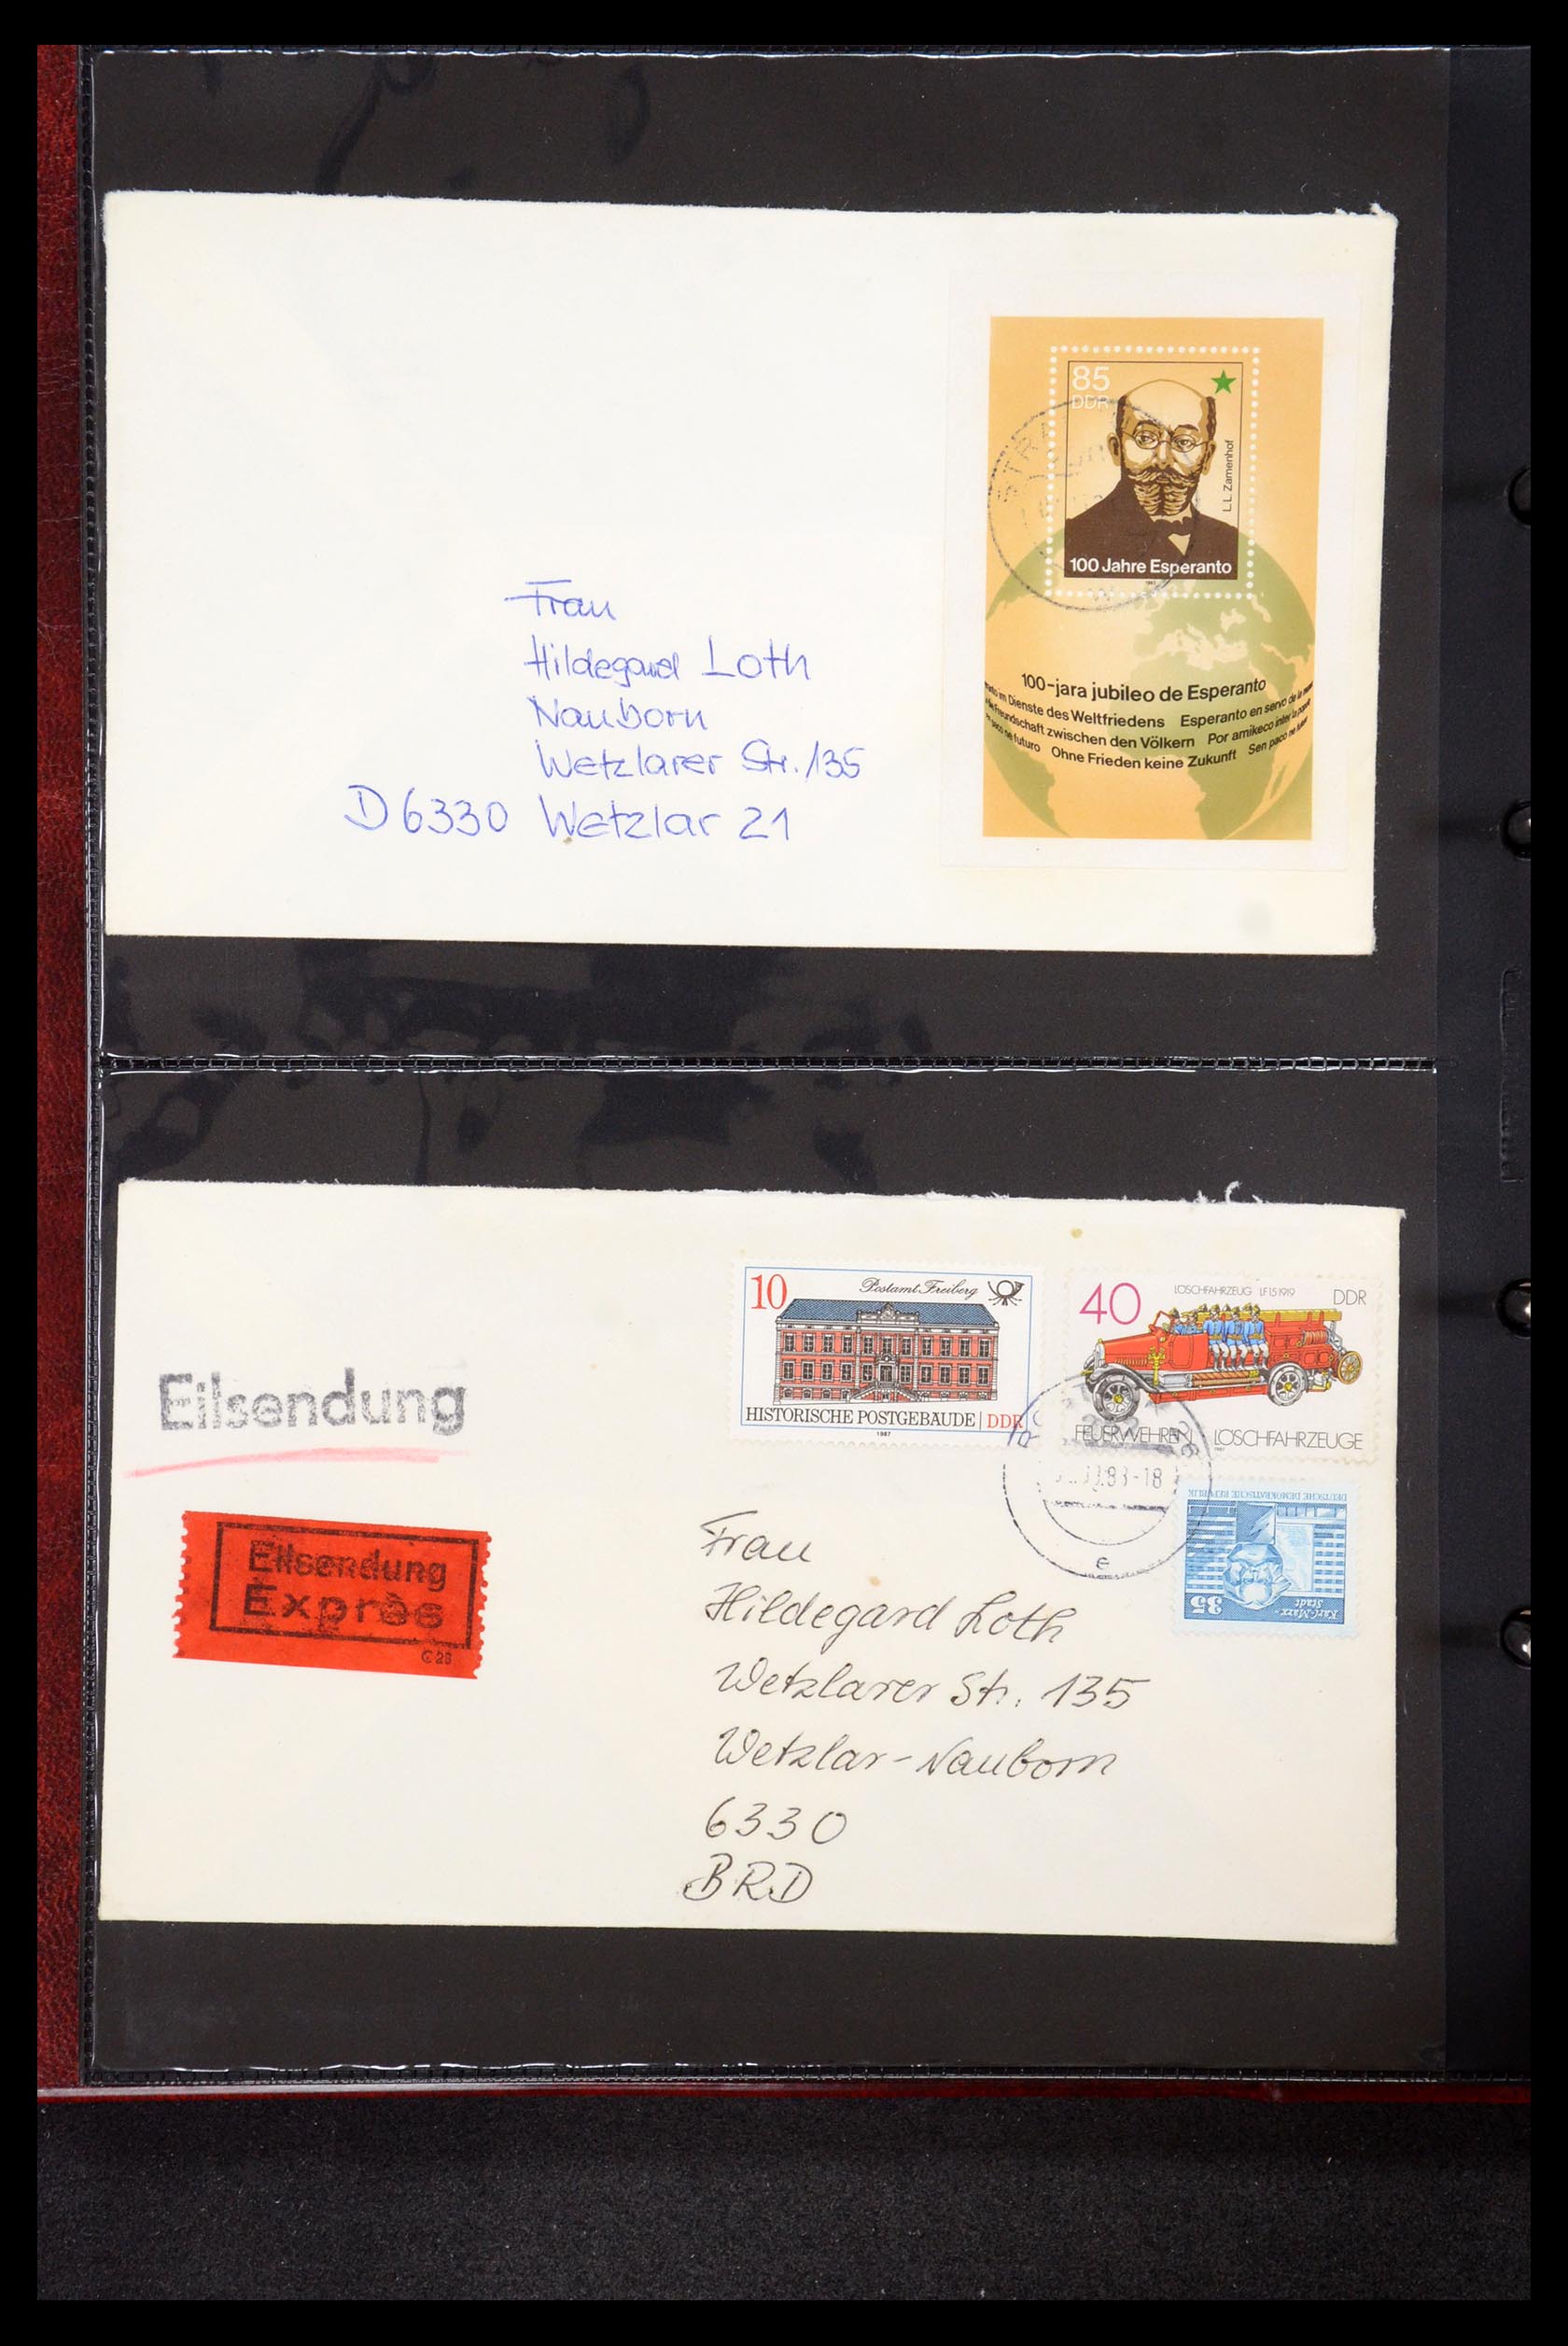 85
DDR
L.L. Zamenhof
100 Jahre Esperanto
1987
100-jara jubileo de Esperanto
im Dienste des Weltfriedens Esperanto en servo de la
Freundschaft zwischen den Völkern Por amikeco inter la
paco ne futuro Ohne Frieden keine Zukunft Sen paco ne futuro
Frau
Hildegard Loth
Nauborn
Wetzlarer Str. 135
D 6330 Wetzlar 21
10 Postamt Freiberg
HISTORISCHE POSTGEBÄUDE | DDR
1987
40 LÖSCHFAHRZEUG LF 15 1919 DDR
FEUERWEHREN LÖSCHFAHRZEUGE
1987
88-18
e
DEUTSCHE DEMOKRATISCHE REPUBLIK
35
Karl-Marx-
Stadt
Eilsendung
Eilsendung
Exprès
C 28
Frau
Hildegard Loth
Wetzlarer Str. 135
Wetzlar-Nauborn
6330
BRD